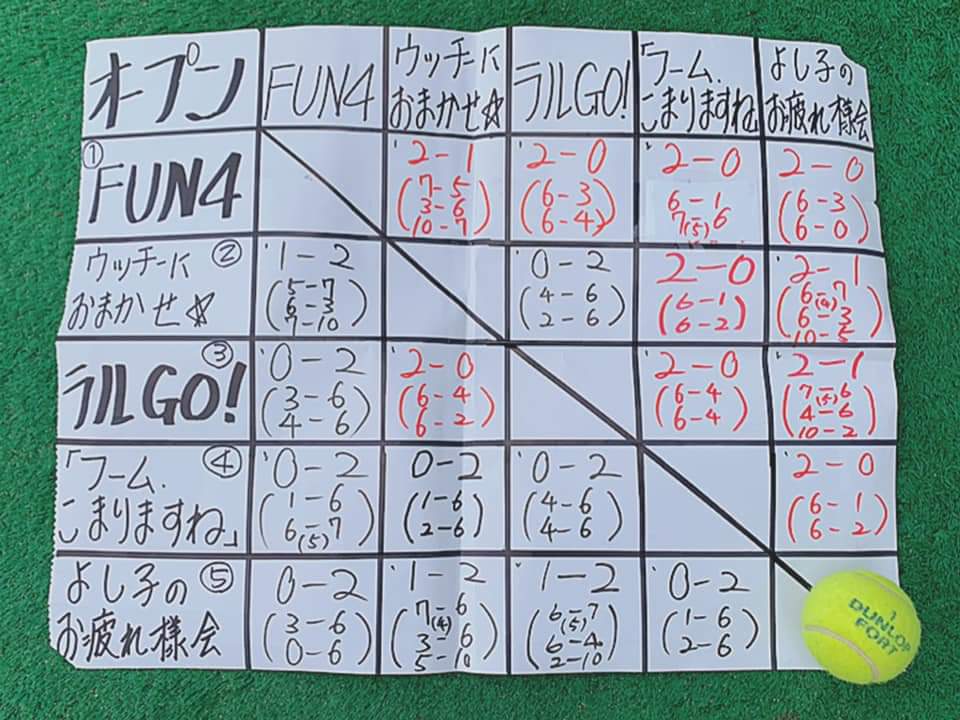 オープン
FUN4
ウッチーに
おまかせ☆
ラルGO!
「フーム.
こまりますね」
よし子の
お疲れ様会
① FUN4
2-1
(7-5
3-6
10-7)
2-0
(6-3
6-4)
2-0
6-1
7(5)6
2-0
(6-3
6-0)
ウッチーに ②
おまかせ☆
1-2
(5-7
6-3
7-10)
0-2
(4-6
2-6)
2-0
(6-1
6-2)
2-1
(6(4)7
6-3
10-5)
③
ラルGO!
0-2
(3-6
4-6)
2-0
(6-4
6-2)
2-0
(6-4
6-4)
2-1
(7(5)6
4-6
10-2)
「フーム. ④
こまりますね」
0-2
(1-6
6(5)7)
0-2
(1-6
2-6)
0-2
(4-6
4-6)
2-0
(6-1
6-2)
よし子の ⑤
お疲れ様会
0-2
(3-6
0-6)
1-2
(7(4)6
3-6
5-10)
1-2
(6(5)7
6-4
2-10)
0-2
(1-6
2-6)
1
DUNLOP
FORT